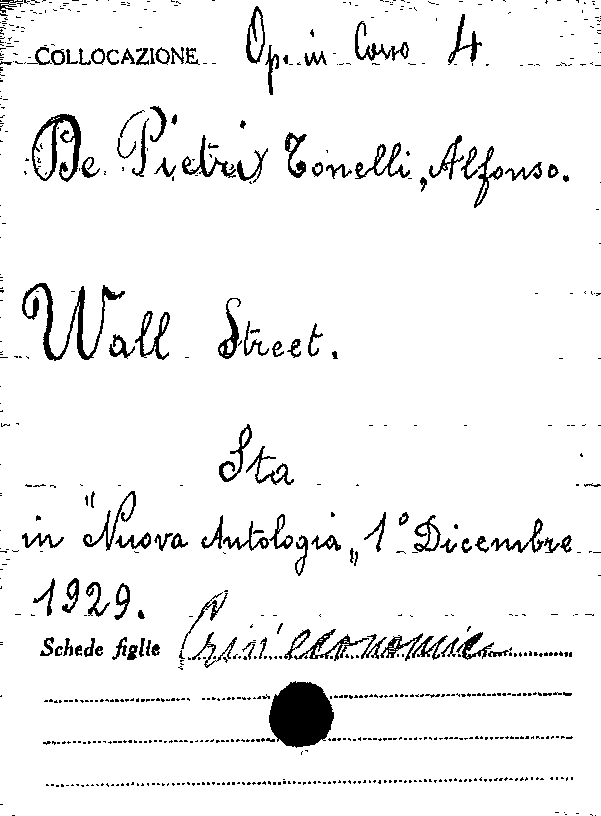 COLLOCAZIONE Op. in Corso 4
De Pietri Tonelli, Alfonso.
Wall Street.
Sta
in "Nuova Antologia„ 1° Dicembre
1929.
Schede figlie Crisi economic